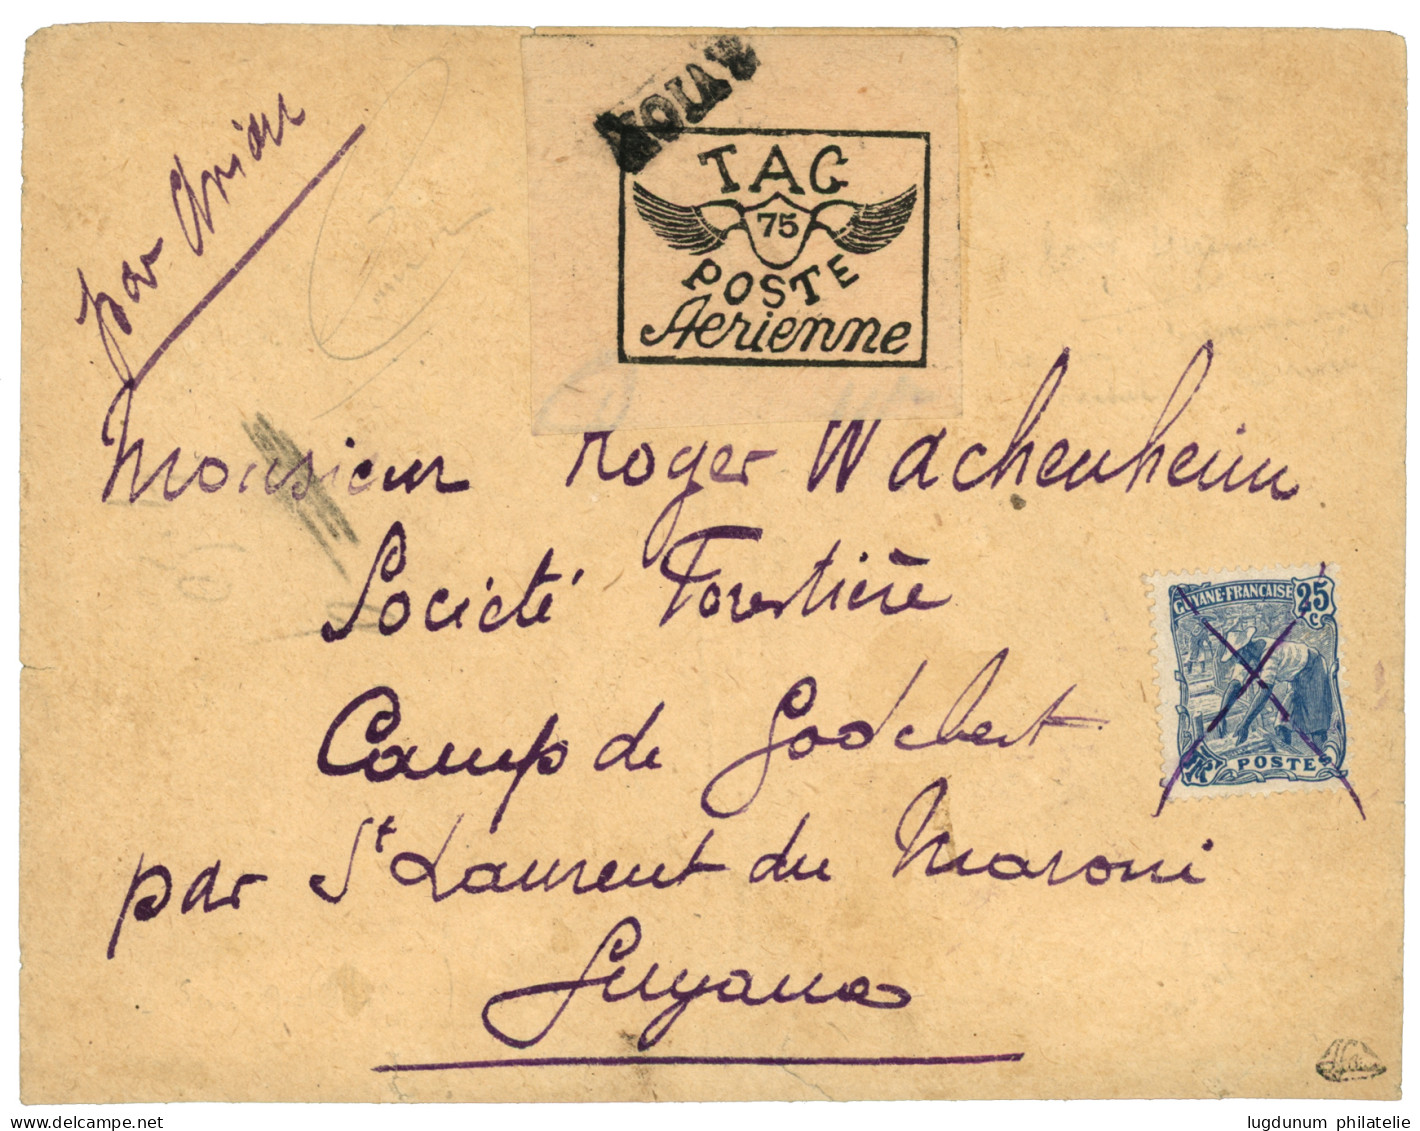 par Avion
AVION
TAG
75
POSTE
Aerienne
Monsieur Roger Wachenheim
Société Forestière
Camp de Godebert
par St Laurent du Maroni
Guyane
GUYANE-FRANÇAISE 25 c.
POSTES
lugdunum philatelie